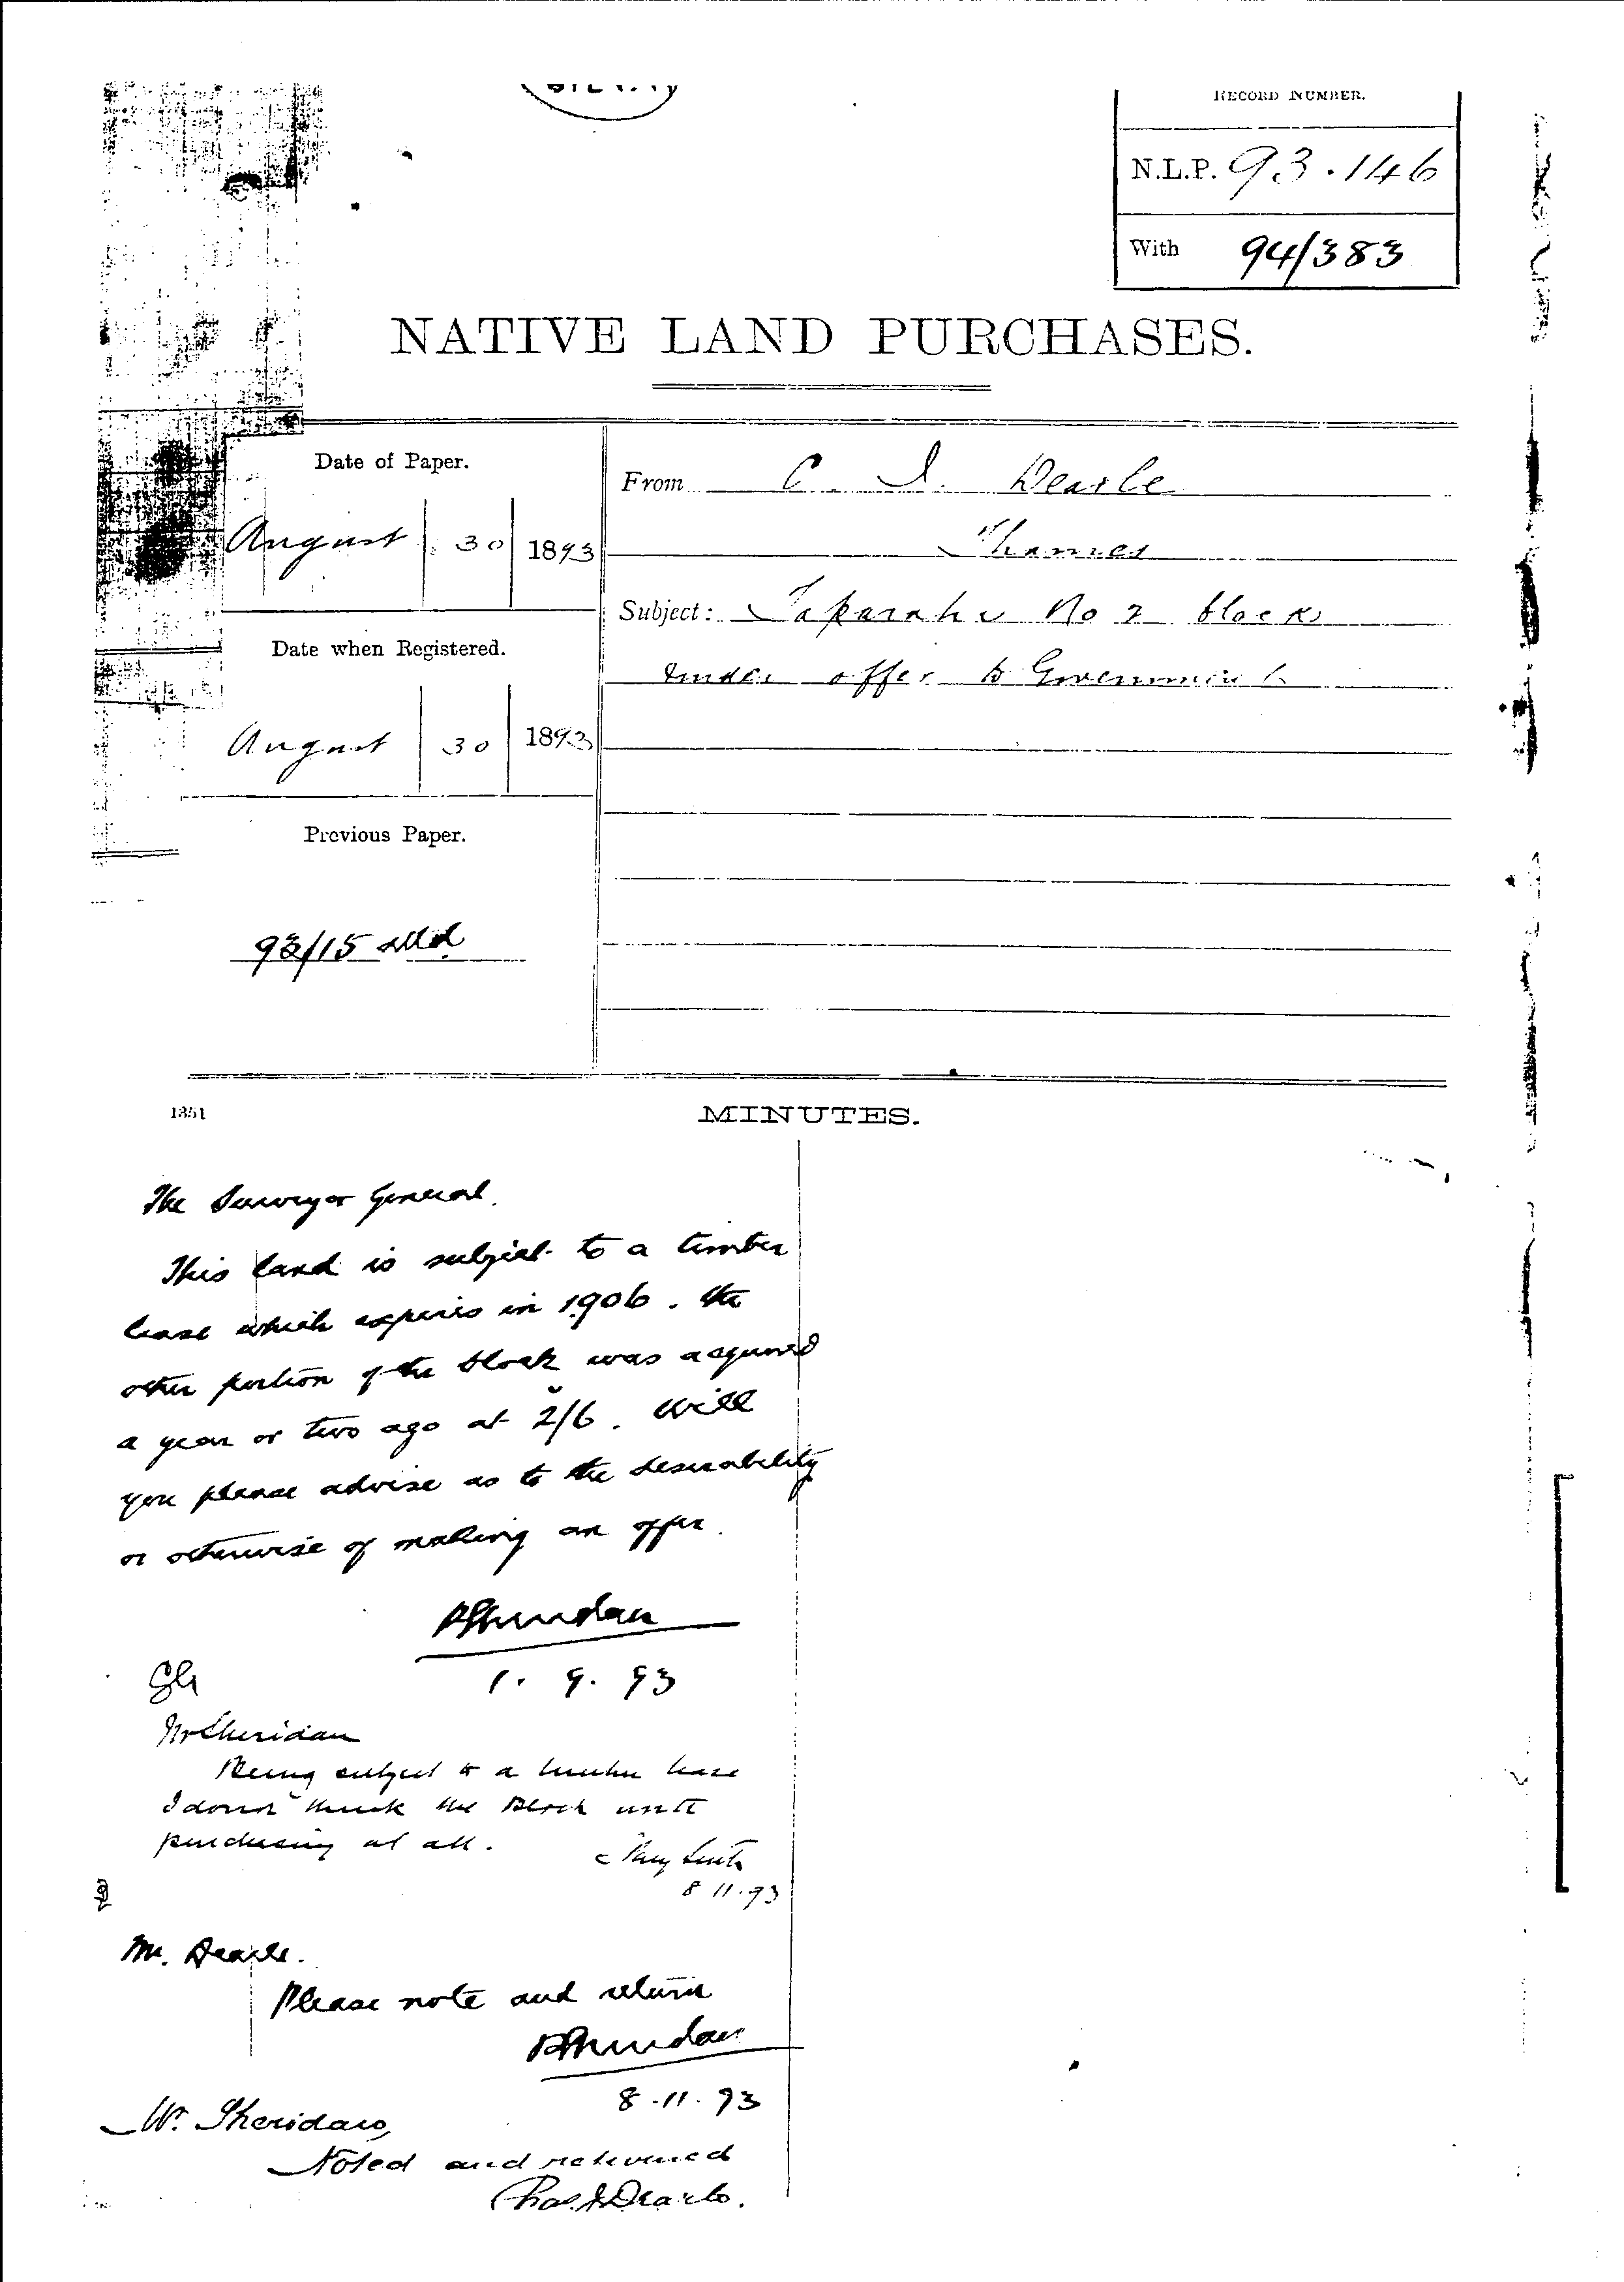 RECORD NUMBER.
N.L.P. 93.146
With 94/383
NATIVE LAND PURCHASES.
Date of Paper.
August 30 1893
From C. J. Dearle
Thames
Subject: Taparahi No 2 block
under offer to Government
Date when Registered.
August 30 1893
Previous Paper.
93/15
1351
MINUTES.
The Surveyor General.
This land is subject to a timber
lease which expires in 1906. The
other portion of the block was acquired
a year or two ago at 2/6. Will
you please advise as to the desirability
or otherwise of making an offer.
PSheridan
1. 9. 93
SG
Mr Sheridan
Being subject to a timber lease
I dont think the Block worth
purchasing at all.
S Percy Smith
8 11.93
Mr. Dearle.
Please note and return
PSheridan
8.11.93
Mr. Sheridan,
Noted and returned
Chas J Dearle.